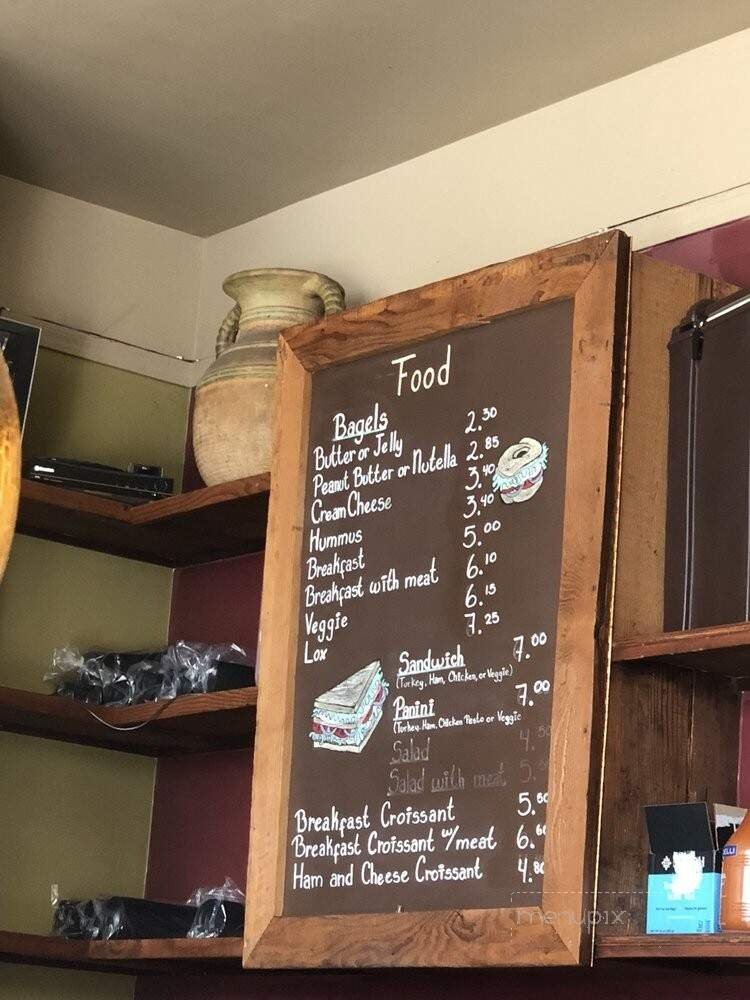 Food
Bagels
Butter or Jelly 2.30
Peanut Butter or Nutella 2.85
Cream Cheese 3.40
Hummus 3.40
Breakfast 5.00
Breakfast with meat 6.10
Veggie 6.15
Lox 7.25
Sandwich 7.00
(Turkey, Ham, Chicken, or Veggie)
Panini 7.00
(Turkey, Ham, Chicken Pesto or Veggie
Salad
Salad with meat
Breakfast Croissant 5.50
Breakfast Croissant w/meat 6.60
Ham and Cheese Croissant 4.80
menupix